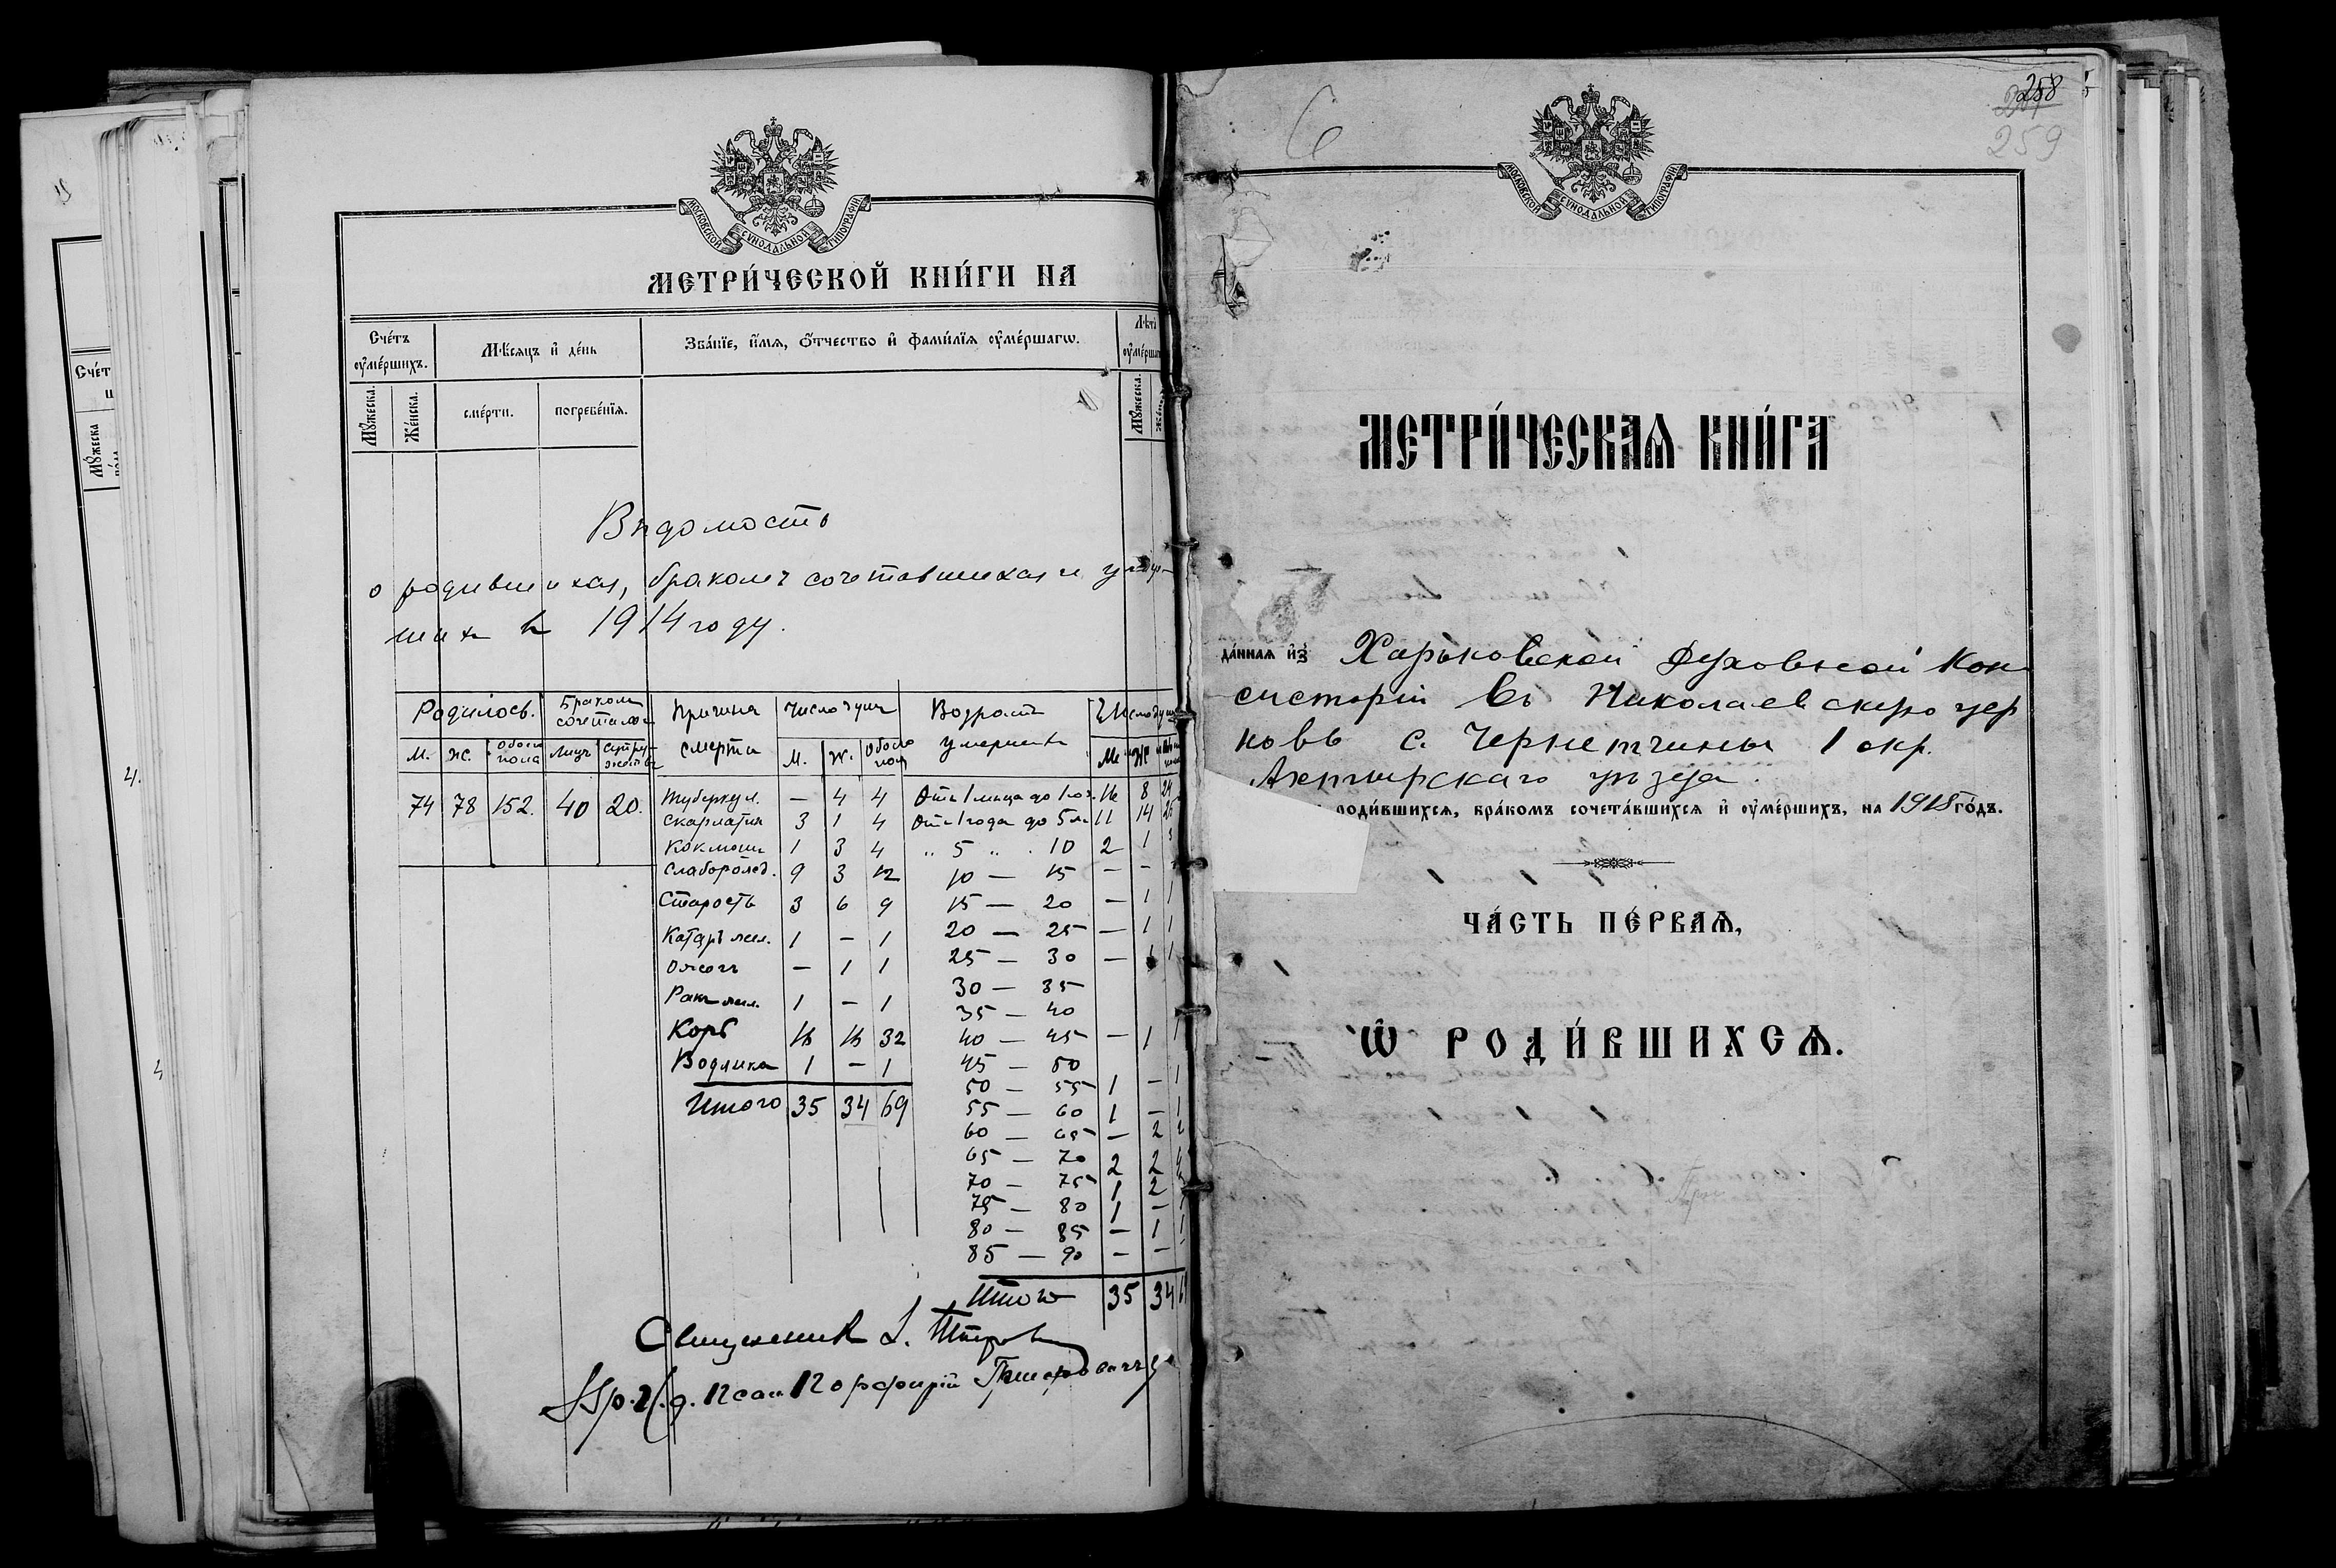 МОСКОВСКОЙ СѴНОДАЛЬНОЙ ТИПОГРАФІИ
МЕТРИ́ЧЕСКОЙ КНИ́ГИ НА
Сче́тъ
ᲂу҆ме́ршихъ.
Мѣ́сяцъ и҆ де́нь
Зва́нїе, и҆́мѧ, ѻ҆́тчество и҆ фами́лїѧ ᲂу҆ме́ршагѡ.
Лѣта
ᲂу҆ме́рша
Мꙋ́жеска.
Же́нска.
сме́рти.
погребе́нїѧ.
Мꙋ́жеска.
Вѣдомость
о родившихся, бракомъ сочетавшихся и умер-
шихъ въ 1914 году.
Родилось.
Бракомъ
сочеталось
Причина
смерти
Число душ
Возрастъ
умершихъ
Число душ
М. Ж. Обоего пола Лицъ Супружествъ М. Ж. Обоего пол М Ж
74 78 152. 40 20.
Туберкул. — 4 4 Отъ 1 мѣсца до 1 год. 16 8 24
Скарлатин 3 1 4 Отъ 1 года до 5 л. 11 14 25
Коклюшъ 1 3 4 „ 5 „ . 10 2 1 3
Слаборожд. 9 3 12 10 — 15 — —
Старость 3 6 9 15 — 20 — 1 1
Катаръ жел. 1 — 1 20 — 25 — 1 1
Ожогъ — 1 1 25 — 30 — 1 1
Ракъ жел. 1 — 1 30 — 35
35 — 40
Корь 16 16 32 40 — 45 — 1 1
Водянка 1 — 1 45 — 50
50 — 55 1 — 1
Итого 35 34 69 55 — 60 1 — 1
60 — 65 — 2 2
65 — 70 2 2 4
70 — 75 1 2
75 — 80 1 —
80 — 85 — 1 1
85 — 90 — — —
Итого 35 34
Священник І. Петров
Псал Порфирій
6
258
259
МОСКОВСКОЙ СѴНОДАЛЬНОЙ ТИПОГРАФІИ
МЕТРИ́ЧЕСКАѦ КНИ́ГА
да́ннаѧ и҆з̾ Харьковской Духовной Кон
систоріи въ Николаевскую цер
ковь с. Чернетчины 1 окр.
Ахтырскаго уѣзда.
роди́вшихсѧ, бра́комъ сочета́вшихсѧ и҆ ᲂу҆ме́ршихъ, на 1915 го́дъ.
ЧА́СТЬ ПЕ́РВАѦ,
Ѽ РОДИ́ВШИХСѦ.